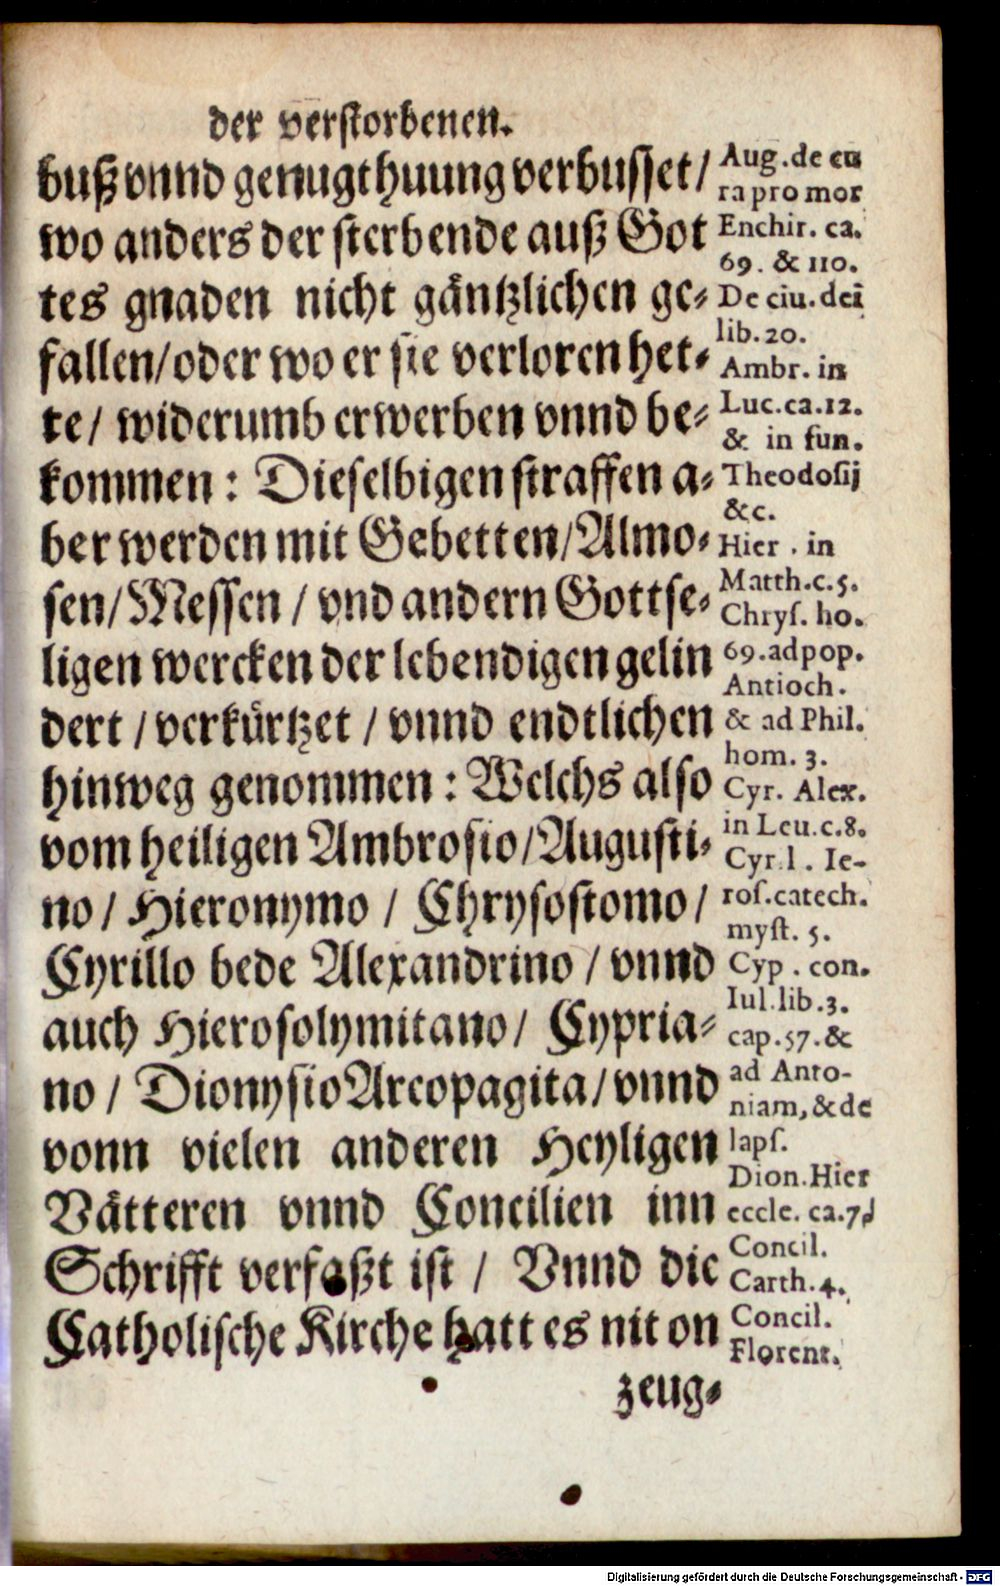 der verstorbenen.
buß vnnd genugthuung verbusset /
wo anders der sterbende auß Got
tes gnaden nicht gäntzlichen ge⸗
fallen / oder wo er sie verloren het⸗
te / widerumb erwerben vnnd be⸗
kommen : Dieselbigen straffen a⸗
ber werden mit Gebetten / Almo⸗
sen / Messen / vnd andern Gottse⸗
ligen wercken der lebendigen gelin
dert / verkürtzet / vnnd endtlichen
hinweg genommen : Welchs also
vom heiligen Ambrosio / Augusti⸗
no / Hieronymo / Chrysostomo /
Cyrillo bede Alexandrino / vnnd
auch Hierosolymitano / Cypria⸗
no / Dionysio Areopagita / vnnd
vonn vielen anderen Heyligen
Vätteren vnnd Concilien inn
Schrifft verfaßt ist / Vnnd die
Catholische Kirche hatt es nit on
zeug⸗
Aug. de cu
ra pro mor
Enchir. ca.
69. & 110.
De ciu. dei
lib. 20.
Ambr. in
Luc. ca. 12.
& in fun.
Theodosij
&c.
Hier. in
Matth. c. 5.
Chrys. ho.
69. ad pop.
Antioch.
& ad Phil.
hom. 3.
Cyr. Alex.
in Leu. c. 8.
Cyrl. Ie-
ros. catech.
myst. 5.
Cyp. con.
Iul. lib. 3.
cap. 57. &
ad Anto-
niam, & de
laps.
Dion. Hier
eccle. ca. 7.
Concil.
Carth. 4.
Concil.
Florent.
Digitalisierung gefördert durch die Deutsche Forschungsgemeinschaft - DFG